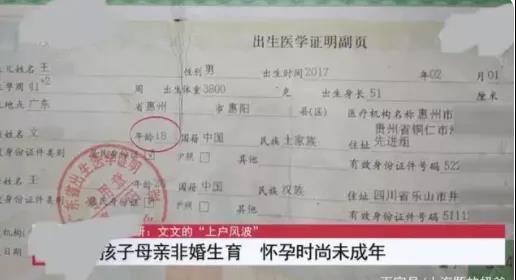 出生医学证明副页
姓名 王 性别 男 出生时间 2017 年 02 月 01
孕周 41+2 周 出生体重 3800 克 出生身长 51 厘米
地点 广东 省 惠州 市 惠阳 县(区) 医疗机构名称 惠州市
姓名 文 年龄 18 国籍 中国 民族 土家族 住址 贵州省铜仁市 先进组
有效身份证件类别 居民身份证 护照 其他 有效身份证件号码 522
姓名 王 年龄 国籍 中国 民族 汉族 住址 四川省乐山市井
有效身份证件类别 护照 其他 有效身份证件号码 5111
机构名称
日期
广东省出生医学证明
文文的“上户风波”
孩子母亲非婚生育 怀孕时尚未成年